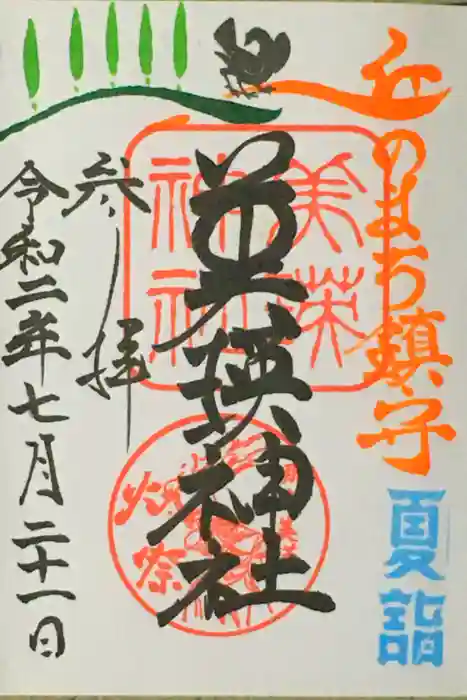 丘のまち鎮守
夏詣
美瑛神社
美瑛
神社
火祭
参拝
令和二年七月二十一日